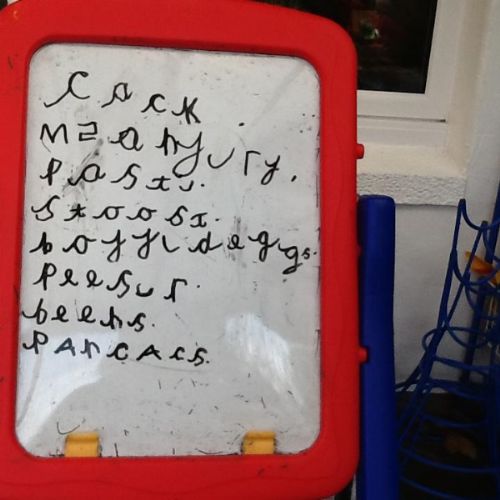 Cack
Pastu.
stoost.
boyyldeggs.
Peesur.
beens.
Pancacs.